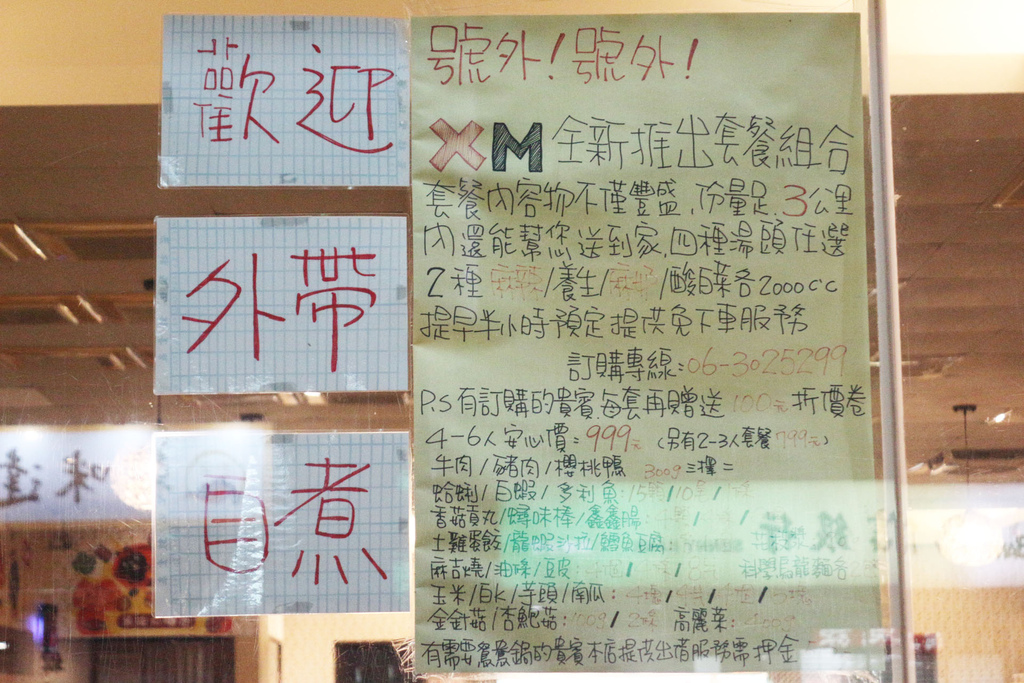 歡迎
外帶
自煮
號外！號外！
XM全新推出套餐組合
套餐內容物不僅豐盛,份量足,3公里
內還能幫您送到家,四種湯頭任選
2種 麻辣/養生/ /酸白菜各2000c'c
提早半小時預定提供免下車服務
訂購專線:06-3025299
P.S有訂購的貴賓,每套再贈送100元折價卷
4-6人安心價:999元 (另有2-3人套餐799元)
牛肉/豬肉/櫻桃鴨 300g 三擇二
蛤蜊/白蝦/多利魚:15顆/10
香菇貢丸/蟳味棒/鑫鑫腸:
土雞蛋餃/龍蝦沙拉/鱈魚豆腐:
麻吉燒/油條/豆皮: 科學烏龍麵
玉米/白K/芋頭/南瓜:
金針菇/杏鮑菇:100g/ 高麗菜:
有需要鴛鴦鍋的貴賓本店提供出借服務需押金
味達